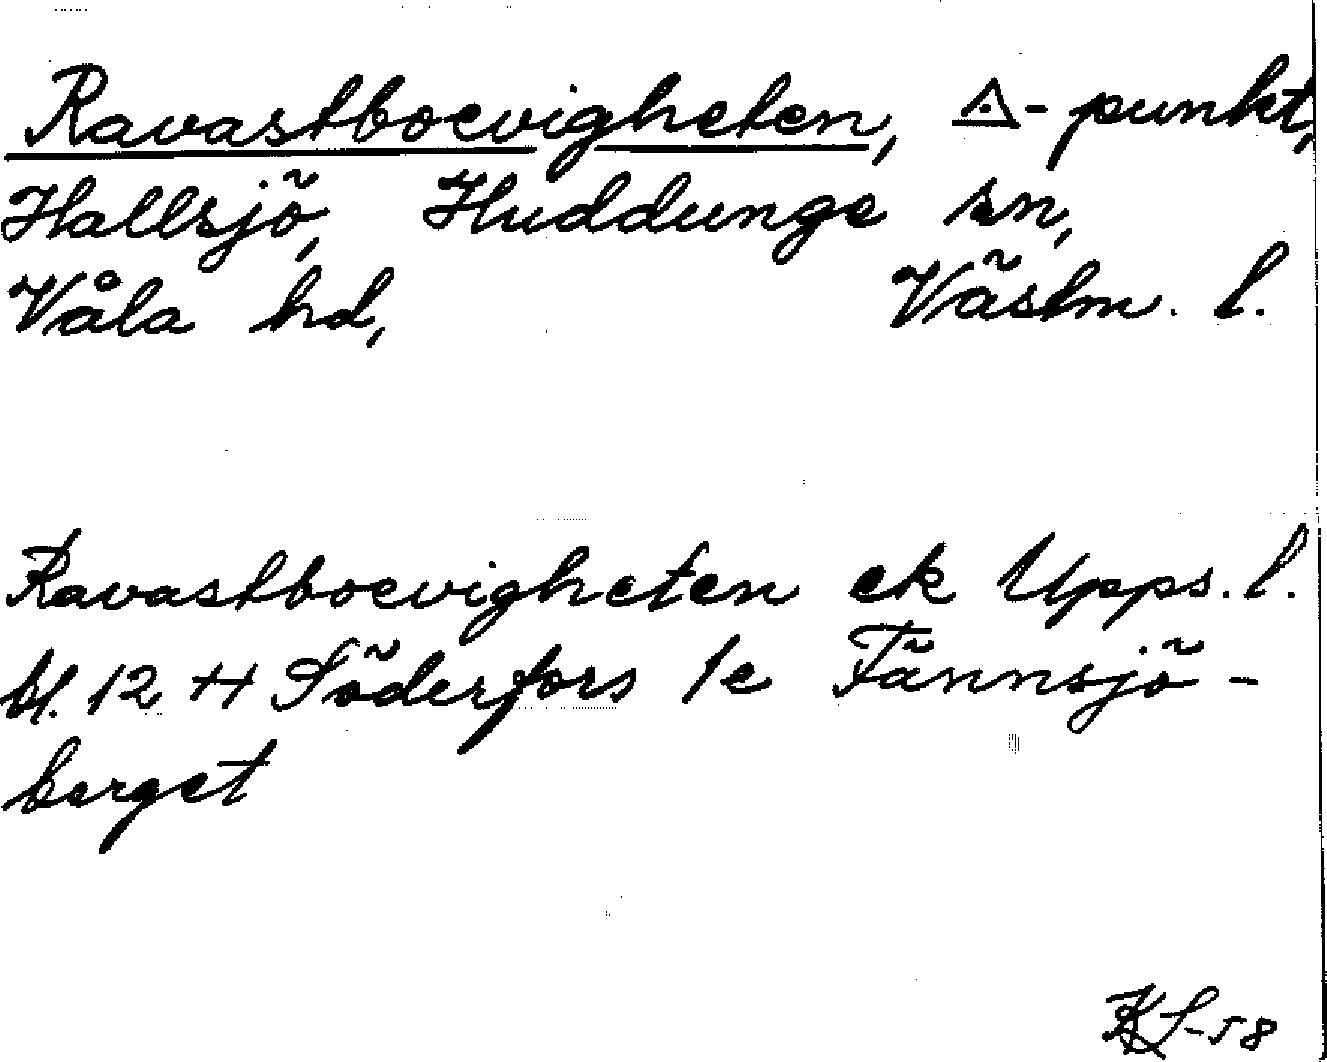 Ravastboevigheten, ◬-punkt,
Hallsjö, Huddunge sn,
Våla hd, Västm. l.
Ravastboevigheten ek Upps. l.
bl. 12 H Söderfors 1e Tännsjö-
berget
KS-58